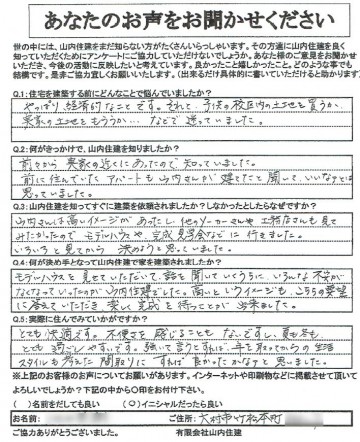 あなたのお声をお聞かせください
世の中には、山内住建をまだ知らない方がたくさんいらっしゃいます。その方達に山内住建を良く
知っていただくためにアンケートにご協力していただけないでしょうか。あなた様のご意見をお聞かせ
いただき、今後の活動に反映したいと考えています。良かったこと嬉しかったこと。どのような事でも
結構です。是非ご協力宜しくお願いいたします。(出来るだけ具体的に書いていただけると助かります)
Q.1:住宅を建築する前にどんなことで悩んでいましたか?
やっぱり経済的なことです。それと、子供の校区内の土地を買うか、
実家の土地をもらうか…などで迷っていました。
Q.2:何がきっかけで、山内住建を知りましたか?
前々から実家の近くにあったので知っていました。
前に住んでいたアパートも山内さんが建てたと聞いて、いいなとは
思っていました。
Q.3:山内住建を知ってすぐに建築を依頼されましたか?しなかったとしたらなぜですか?
山内さんは高いイメージがあったし、他のメーカーさんや工務店さんも見て
みたかったのでモデルハウスや完成見学会などに行きました。
いろいろと見てから決めようと思っていました。
Q.4:何が決め手となって山内住建で家を建築されましたか?
モデルハウスを見せていただいて、話を聞いていくうちに、いろんな不安が
なくなっていったのが山内住建でした。高いというイメージも、こちらの要望
に答えていただき、楽しく完成を待つことが出来ました。
Q.5:実際に住んでみていかがですか?
とても快適です。不便さを感じることもないですし、夏も冬も
とても過ごしやすいです。強いて言うとすれば、年を取ってからの生活
スタイルも考えた間取りにすれば良かったかなぁと思いました。
※上記のお客様のお声についてお願いがあります。インターネットや印刷物などに掲載させて頂いて
よろしいでしょうか?下記の中から○印をお付けて下さい。
( )名前をだしても良い (○)イニシャルだったら良い
お名前: ご住所:大村市竹松本町
ご協力ありがとうございました。 有限会社山内住建